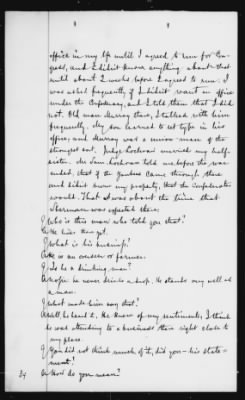 office in my life until I agreed to run for Con-
gress, and I didn't know anything about that
until about 2 weeks before I agreed to run. I
was asked frequently if I didn't want an office
under the Confederacy, and I told them that I did
not. Old man Murray there, I talked with him
frequently. My son learned to set type in his
office, and Murray was a union man of the
strongest sort. Judge Cochran married my half-
sister. Mr. Sam Cochran told me before the war
ended, that if the Yankees came through there
and didn't burn my property, that the Confederates
would. That was about the time that
Sherman was expected there.
Q Who is this man who told you that?
A He lives
Q What is his business?
A He is an overseer or farmer.
Q Is he a drinking man?
A No sir he never drinks a drop. He stands very well as
a man.
Q What made him say that?
A Well, he heard it. He knew of my sentiments; I think
he was attending to a business there right close to
my place.
Q You did not think much of it, did you - his state-
ment?
A How do you mean?
34